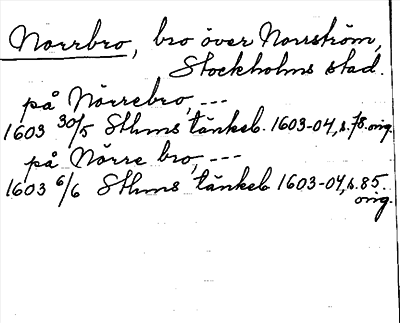 Norrbro, bro över Norrström,
Stockholms stad.
på Nörrebro, ---
1603 30/5 Sthms tänkeb. 1603-04, s. 78. orig.
på Nörre bro, ---
1603 6/6 Sthms tänkeb 1603-04, s. 85.
orig.